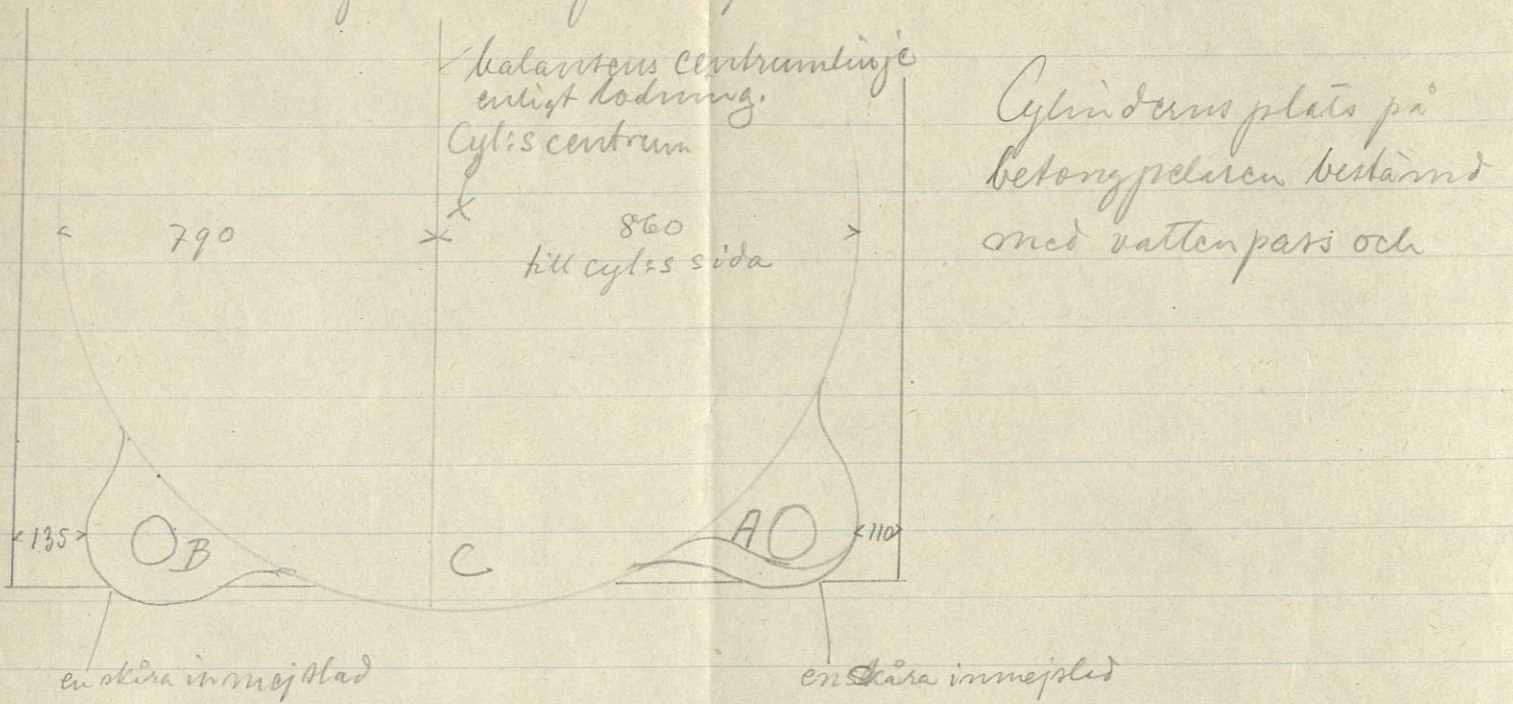 balansens centrumlinje
enligt lodning.
Cyl:s centrum
X
790
860
till cyl:s sida
Cylinderns plats på
betongpelaren bestämd
med vattenpass och
135
B
C
A
110
en skåra inmejslad
en skåra inmejslad